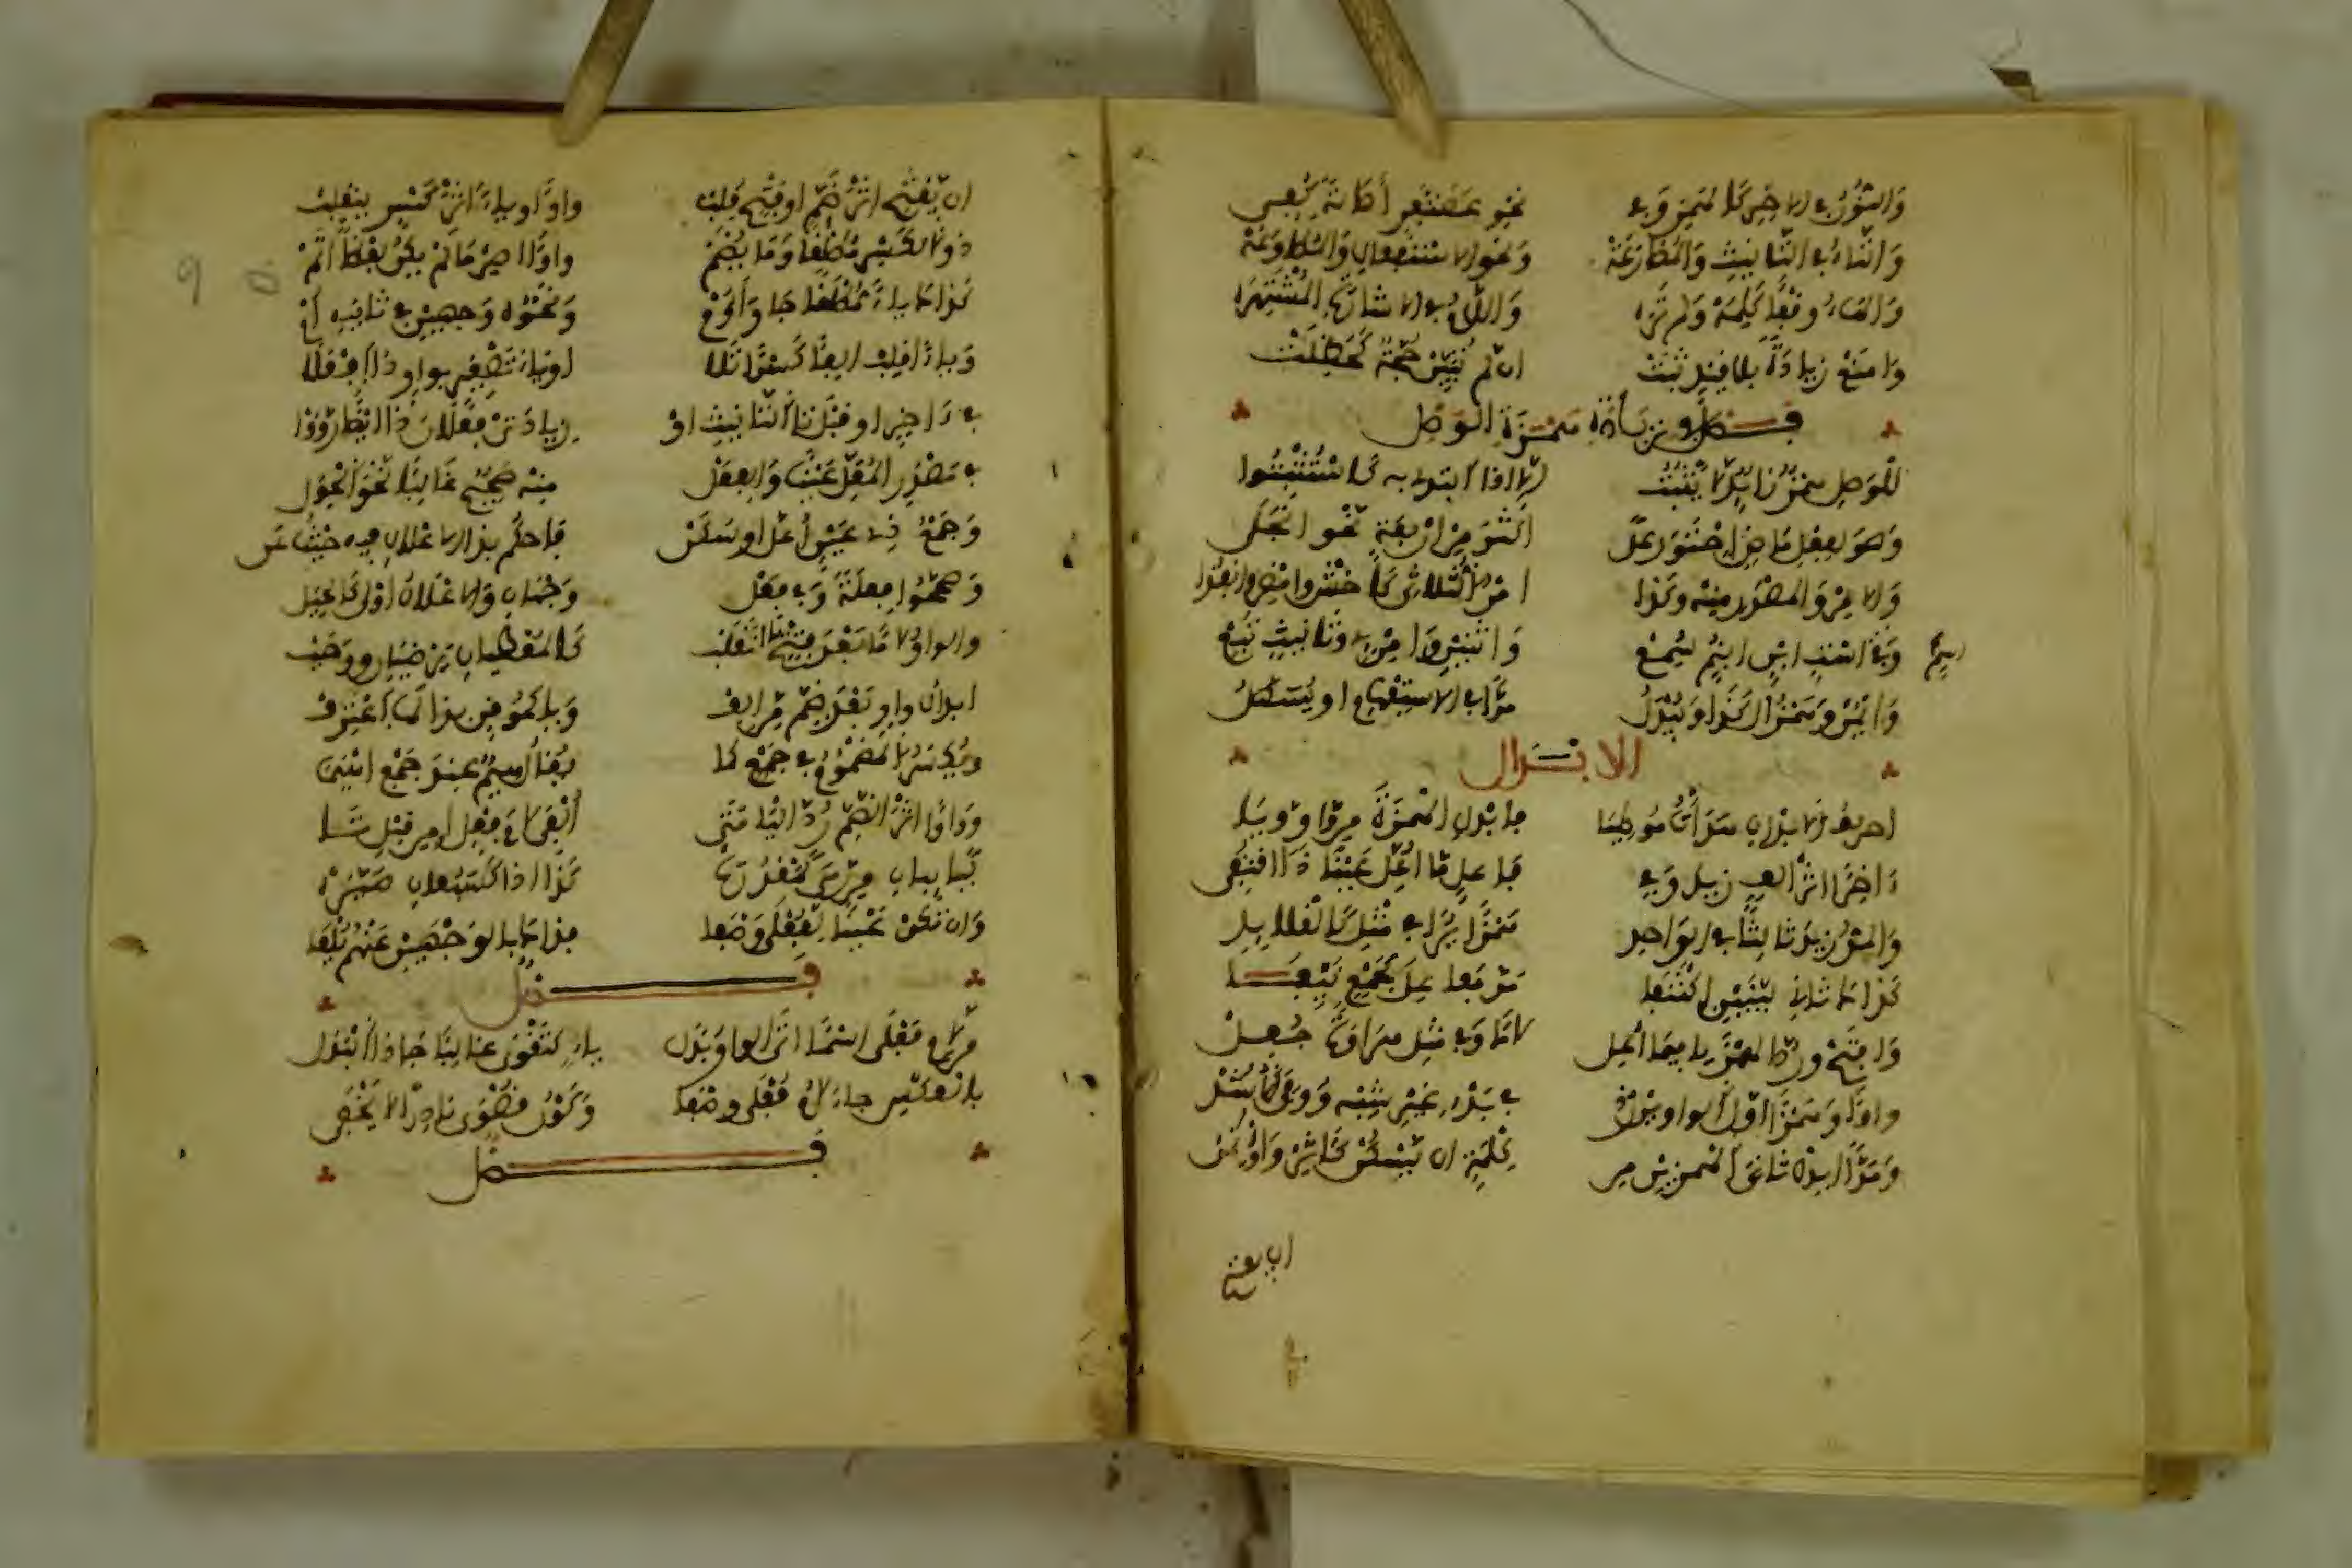 وَالنُّونُ فِي الاخِرِ كَالهَمْزِ وَفِي نَحْوِ غَضَنْفَرٍ أَصَالَةً كُفِي
وَالتَّاءُ فِي التَّانِيثِ وَالْمُضَارَعَهْ وَنَحْوِ الاسْتِفْعَالِ وَالْمُطَاوَعَهْ
وَالهَاءُ وَقْفًا كَلِمَهْ وَلَمْ تَرَهْ وَاللَّامُ فِي الاشَارَةِ الْمُشْتَهِرَهْ
وَامْنَعْ زِيَادَةً بِلَا قَيْدٍ ثَبَتْ ان لَّمْ تُبَيَّنْ حُجَّةٌ كَحَظِلَتْ
فصل في زيادة همزة الوصل
لِلْوَصْلِ هَمْزٌ زَايِدٌ لَّا يَثْبُتُ الَّا اذَا ابْتُدِى بِهِ كَاسْتَثْبِتُوا
وَهْوَ لِفِعْلٍ مَاضٍ احْتَوَى عَلَى اكْثَرَ مِنْ ارْبَعَةٍ نَّحْوِ انْجَلَى
وَالامْرِ وَالْمَصْدَرِ مِنْهُ وَكَذَا امْرُ الثُّلَاثِي كَاخْشَ وَامْضِ وَانْفُذَا
وَفِي اسْتٍ ابْنٍ ابْنُمٍ سُمِعْ وَاثْنَيْنِ وَامْرِئٍ وَتَانِيثٍ تَبِعْ
اسْمٍ
وَايْمُنُ وَهَمْزُ ال كَذَا وَيُبْدَلُ مَدًّا فِي الاسْتِفْهَامِ اوْ يُسَهَّلُ
الابدال
احْرُفُ الابْدَالِ هَدَأْتُ مُوطِيَا فَابْدِلِ الْهَمْزَةَ مِنْ وَاوٍ وَيَا
ءَاخِرًا اثْرَ أَلِفٍ زِيدَ وَفِي فَاعِلِ مَا أُعِلَّ عَيْنًا ذَا اقْتُفِي
وَالْمَدُّ زِيدَ ثَالِثًا فِي الْوَاحِدِ هَمْزًا يُرَى فِي مِثْلِ كَالْقَلَايِدِ
كَذَاكَ ثَانِي لَيِّنَيْنِ اكْتَنَفَا مَدَّ مَفَاعِلَ كَجَمْعٍ نَيِّفَا
وَافْتَحْ وَرُدَّ الْهَمْزَ يَا فِيمَا أُعِلْ لَامًا وَفِي مِثْلِ هِرَاوَةٍ جُعِلْ
وَاوًا وَهَمْزًا اوَّلَ الْوَاوَيْنِ رُدْ فِي بَدْءِ غَيْرِ شِبْهِ وُوفِيَ الاشُدْ
وَمَدًّا ابْدِلْ ثَانِيَ الْهَمْزَيْنِ مِنْ كِلْمَةٍ ان يَّسْكُنْ كَاثِرْ وَاؤْتُمِنْ
ان يفتح
ان يُّفْتَحِ اثْرَ ضَمٍّ اوْ فَتْحٍ قُلِبْ وَاوًا وَيَاءً اثْرَ كَسْرٍ يَنْقَلِبْ
ذُو الْكَسْرِ مُطْلَقًا وَمَا يُضَمْ وَاوًا اصِرْ مَا لَمْ يَكُنْ لَفْظًا اتَمْ
فَذَاكَ يَاءً مُطْلَقًا جَا وَأَوُمْ وَنَحْوُهُ وَجْهَيْنِ فِي ثَانِيهِ أُمْ
وَيَاءً اقْلِبْ الِفًا كَسْرًا تَلَا اوْ يَاءَ تَصْغِيرٍ بِوَاوٍ ذَا افْعَلَا
فِي ءَاخِرٍ اوْ قَبْلَ تَا التَّانِيثِ اوْ زِيَادَتَيْ فَعْلَانَ ذَا ايْضًا رَأَوْا
فِي مَصْدَرِ الْمُعْتَلِّ عَيْنًا وَالْفِعَلْ مِنْهُ صَحِيحٌ غَالِبًا نَّحْوُ الْحِوَلْ
وَجَمْعُ ذِي عَيْنٍ أُعِلَّ اوْ سَكَنْ فَاحْكُمْ بِذَا الاعْلَالِ فِيهِ حَيْثُ عَنْ
وَصَحَّحُوا فِعَلَةً وَفِي فِعَلْ وَجْهَانِ وَالاعْلَالُ اوْلَى كَالْحِيَلْ
وَالْوَاوُ لَامًا بَعْدَ فَتْحٍ يَا انْقَلَبْ كَالْمُعْطَيَانِ يَرْضَيَانِ وَوَجَبْ
ابْدَالُ وَاوٍ بَعْدَ ضَمٍّ مِّنْ أَلِفْ وَيَا كَمُوقِنٍ بِذَا لَهَا اعْتُرِفْ
وَيُكْسَرُ الْمَضْمُومُ فِي جَمْعٍ كَمَا يُقَالُ هِيمٌ عِنْدَ جَمْعِ اهْيَمَا
وَوَاوًا اثْرَ الضَّمِّ رُدَّ الْيَا مَتَى أُلْفِيَ لَامَ فِعْلٍ اوْ مِن قَبْلِ تَا
كَتَاءِ بَانٍ مِّنْ رَمَى كَمَقْدُرَهْ كَذَا اذَا كَسَبُعَانَ صَيَّرَهْ
وَان تَكُنْ عَيْنًا لِّفُعْلَى وَصْفَا فَذَاكَ بِالْوَجْهَيْنِ عَنْهُمْ يُلْفَى
فصل
مِن لَّامِ فَعْلَى اسْمًا اتَى الْوَاوُ بَدَلْ يَاءٍ كَتَقْوَى غَالِبًا جَا ذَا الْبَدَلْ
بِالْعَكْسِ جَاءَ لَامُ فُعْلَى وَصْفَا وَكَوْنُ قُصْوَى نَادِرًا لَا يَخْفَى
فصل